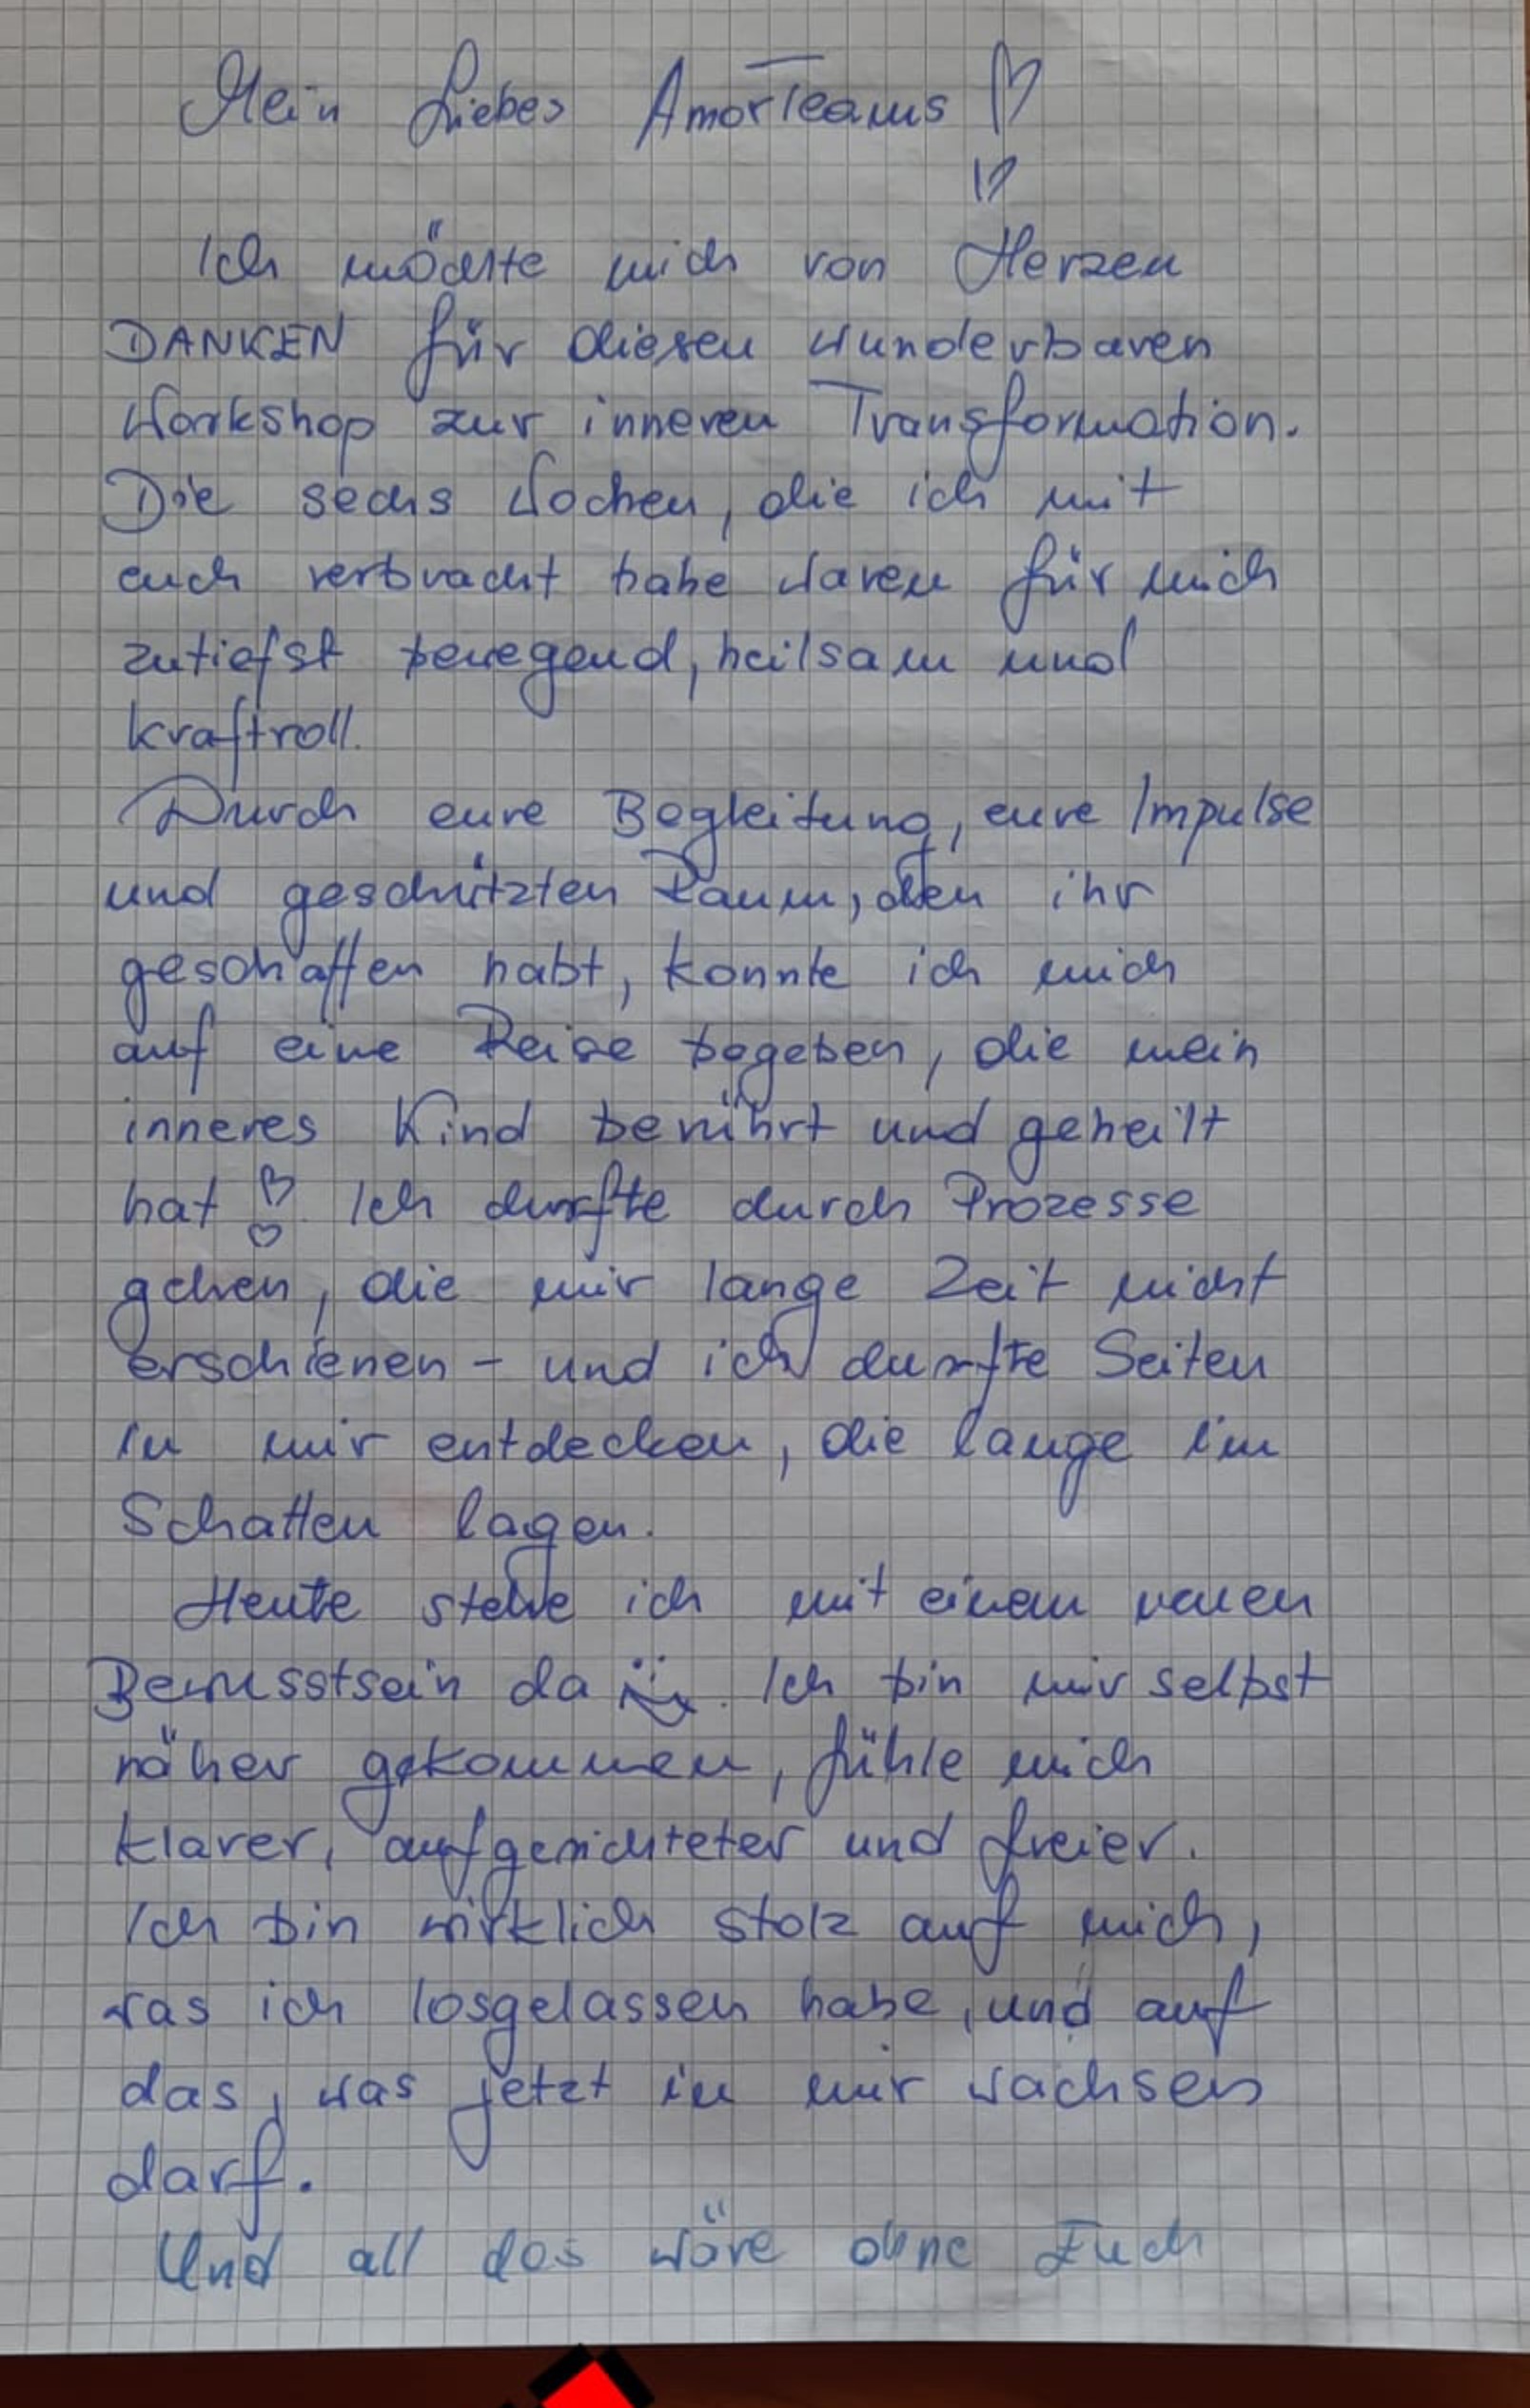 Mein Liebes AmorTeams ♡
♡
Ich möchte mich von Herzen
DANKEN für diesen wunderbaren
Workshop zur inneren Transformation.
Die sechs Wochen, die ich mit
euch verbracht habe waren für mich
zutiefst bewegend, heilsam und
kraftvoll.
Durch eure Begleitung, eure Impulse
und geschützten Raum, den ihr
geschaffen habt, konnte ich mich
auf eine Reise begeben, die mein
inneres Kind berührt und geheilt
hat ♡. Ich durfte durch Prozesse
gehen, die mir lange Zeit nicht
erschienen - und ich durfte Seiten
in mir entdecken, die lange im
Schatten lagen.
Heute stehe ich mit einem neuen
Bewusstsein da. Ich bin mir selbst
näher gekommen, fühle mich
klarer, aufgerichteter und freier.
Ich bin wirklich stolz auf mich,
was ich losgelassen habe, und auf
das, was jetzt in mir wachsen
darf.
Und all das wäre ohne Euch